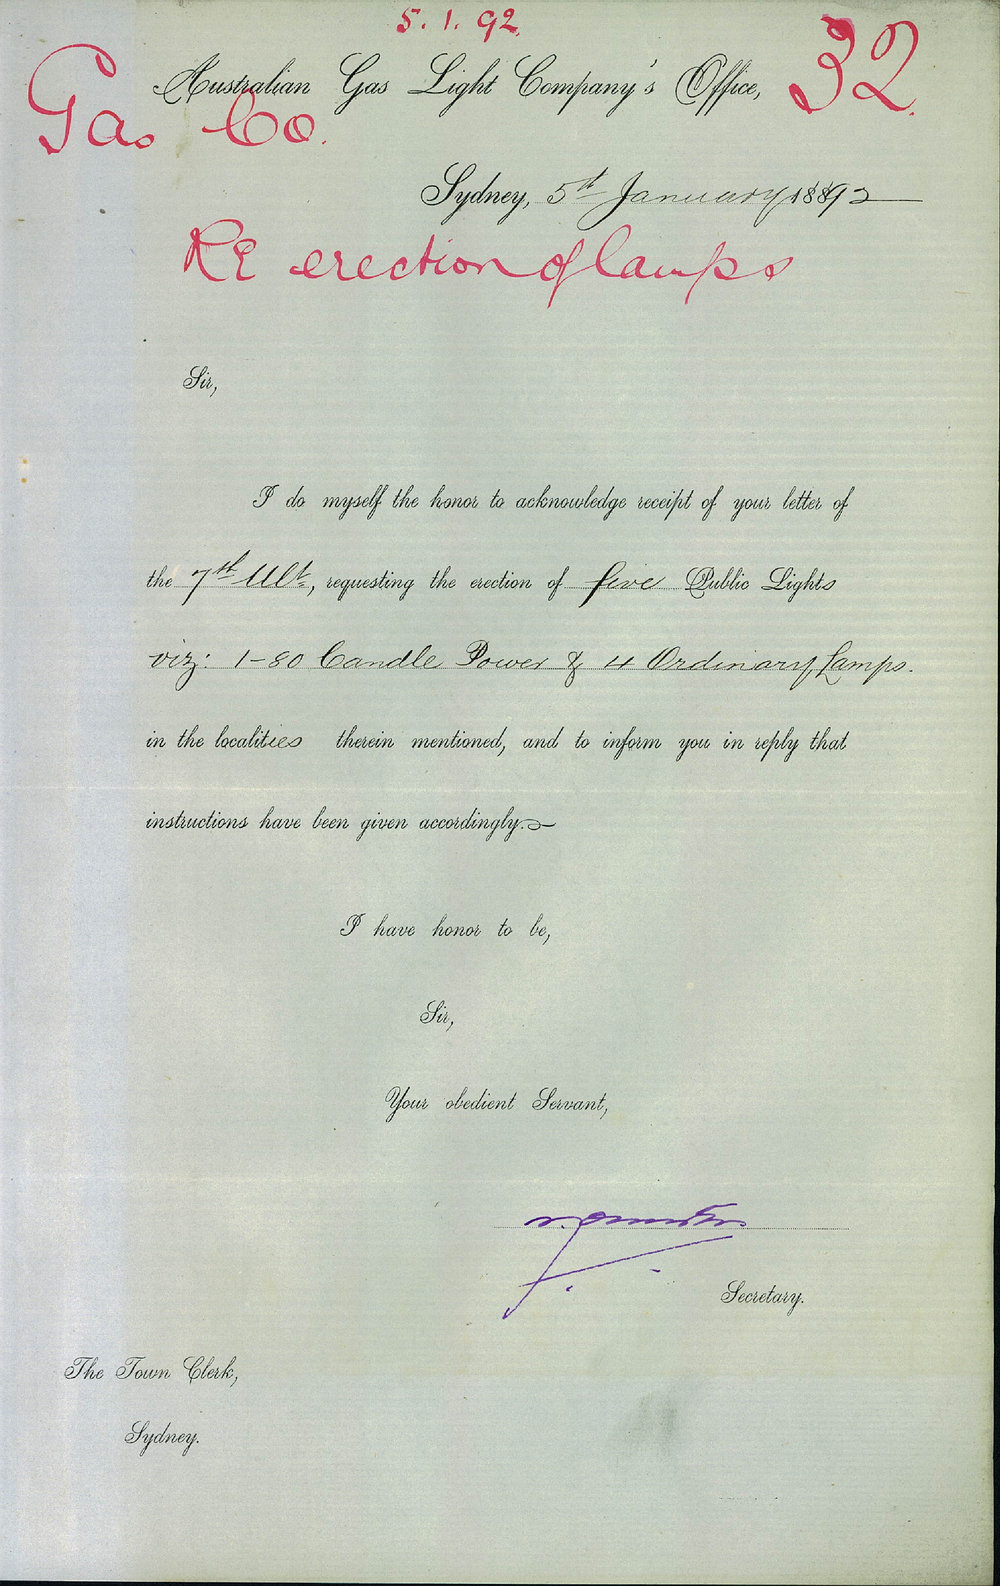 5. 1. 92.
32
Australian Gas Light Company's Office,
Gas Co.
Sydney, 5th January 1892
RE erection of lamps
Sir,
I do myself the honor to acknowledge receipt of your letter of
the 7th Ult., requesting the erection of five Public Lights
viz: 1-80 Candle Power & 4 Ordinary Lamps.
in the localities therein mentioned, and to inform you in reply that
instructions have been given accordingly.
I have honor to be,
Sir,
Your obedient Servant,
Secretary.
The Town Clerk,
Sydney.